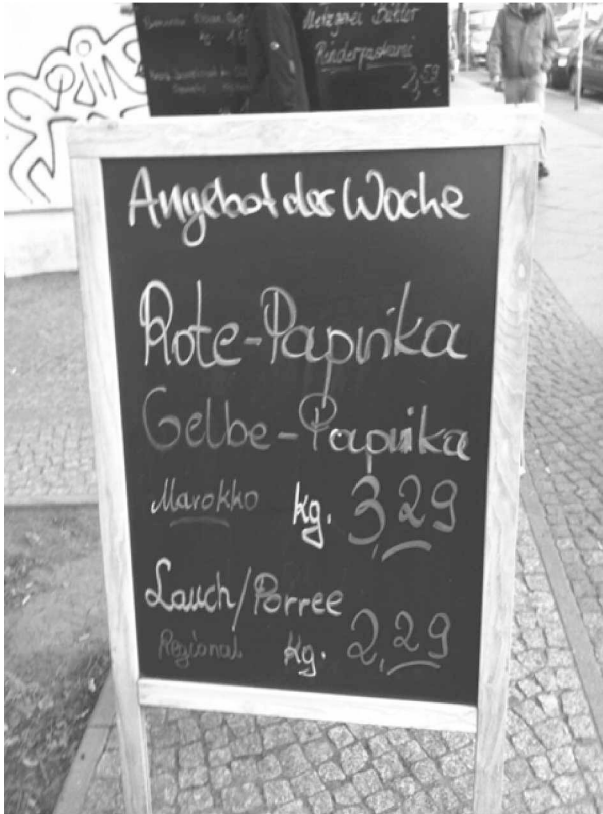 kg.
Metzgerei Bühler
2,59
Angebot der Woche
Rote-Paprika
Gelbe-Paprika
Marokko kg. 3,29
Lauch/Porree
Regional kg. 2,29